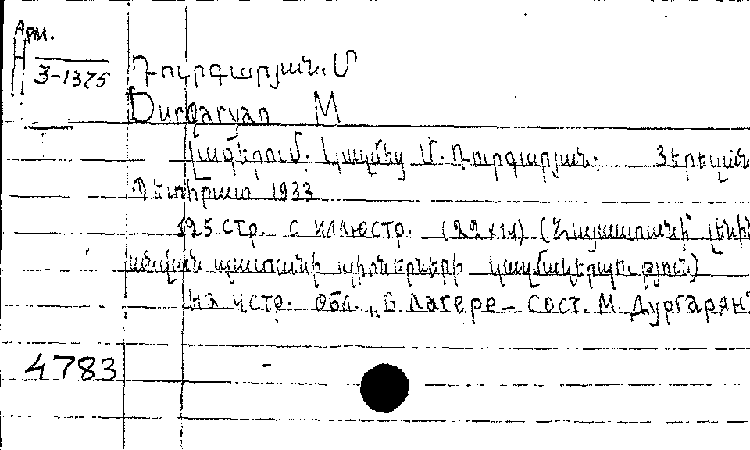 Арм.
3-1375
Դուրգարյան. Մ
Durgaryan M
Լագերում. Կազմեց Մ. Դուրգարյան. Յերեվան
Պետհրատ 1933
125 стр. с иллюстр. (22x14) (Հայաստանի լենին
պատանի պիոներների կազմակերպություն)
На чстр. обл. „В лагере - Сост. М. Дургарян"
4783